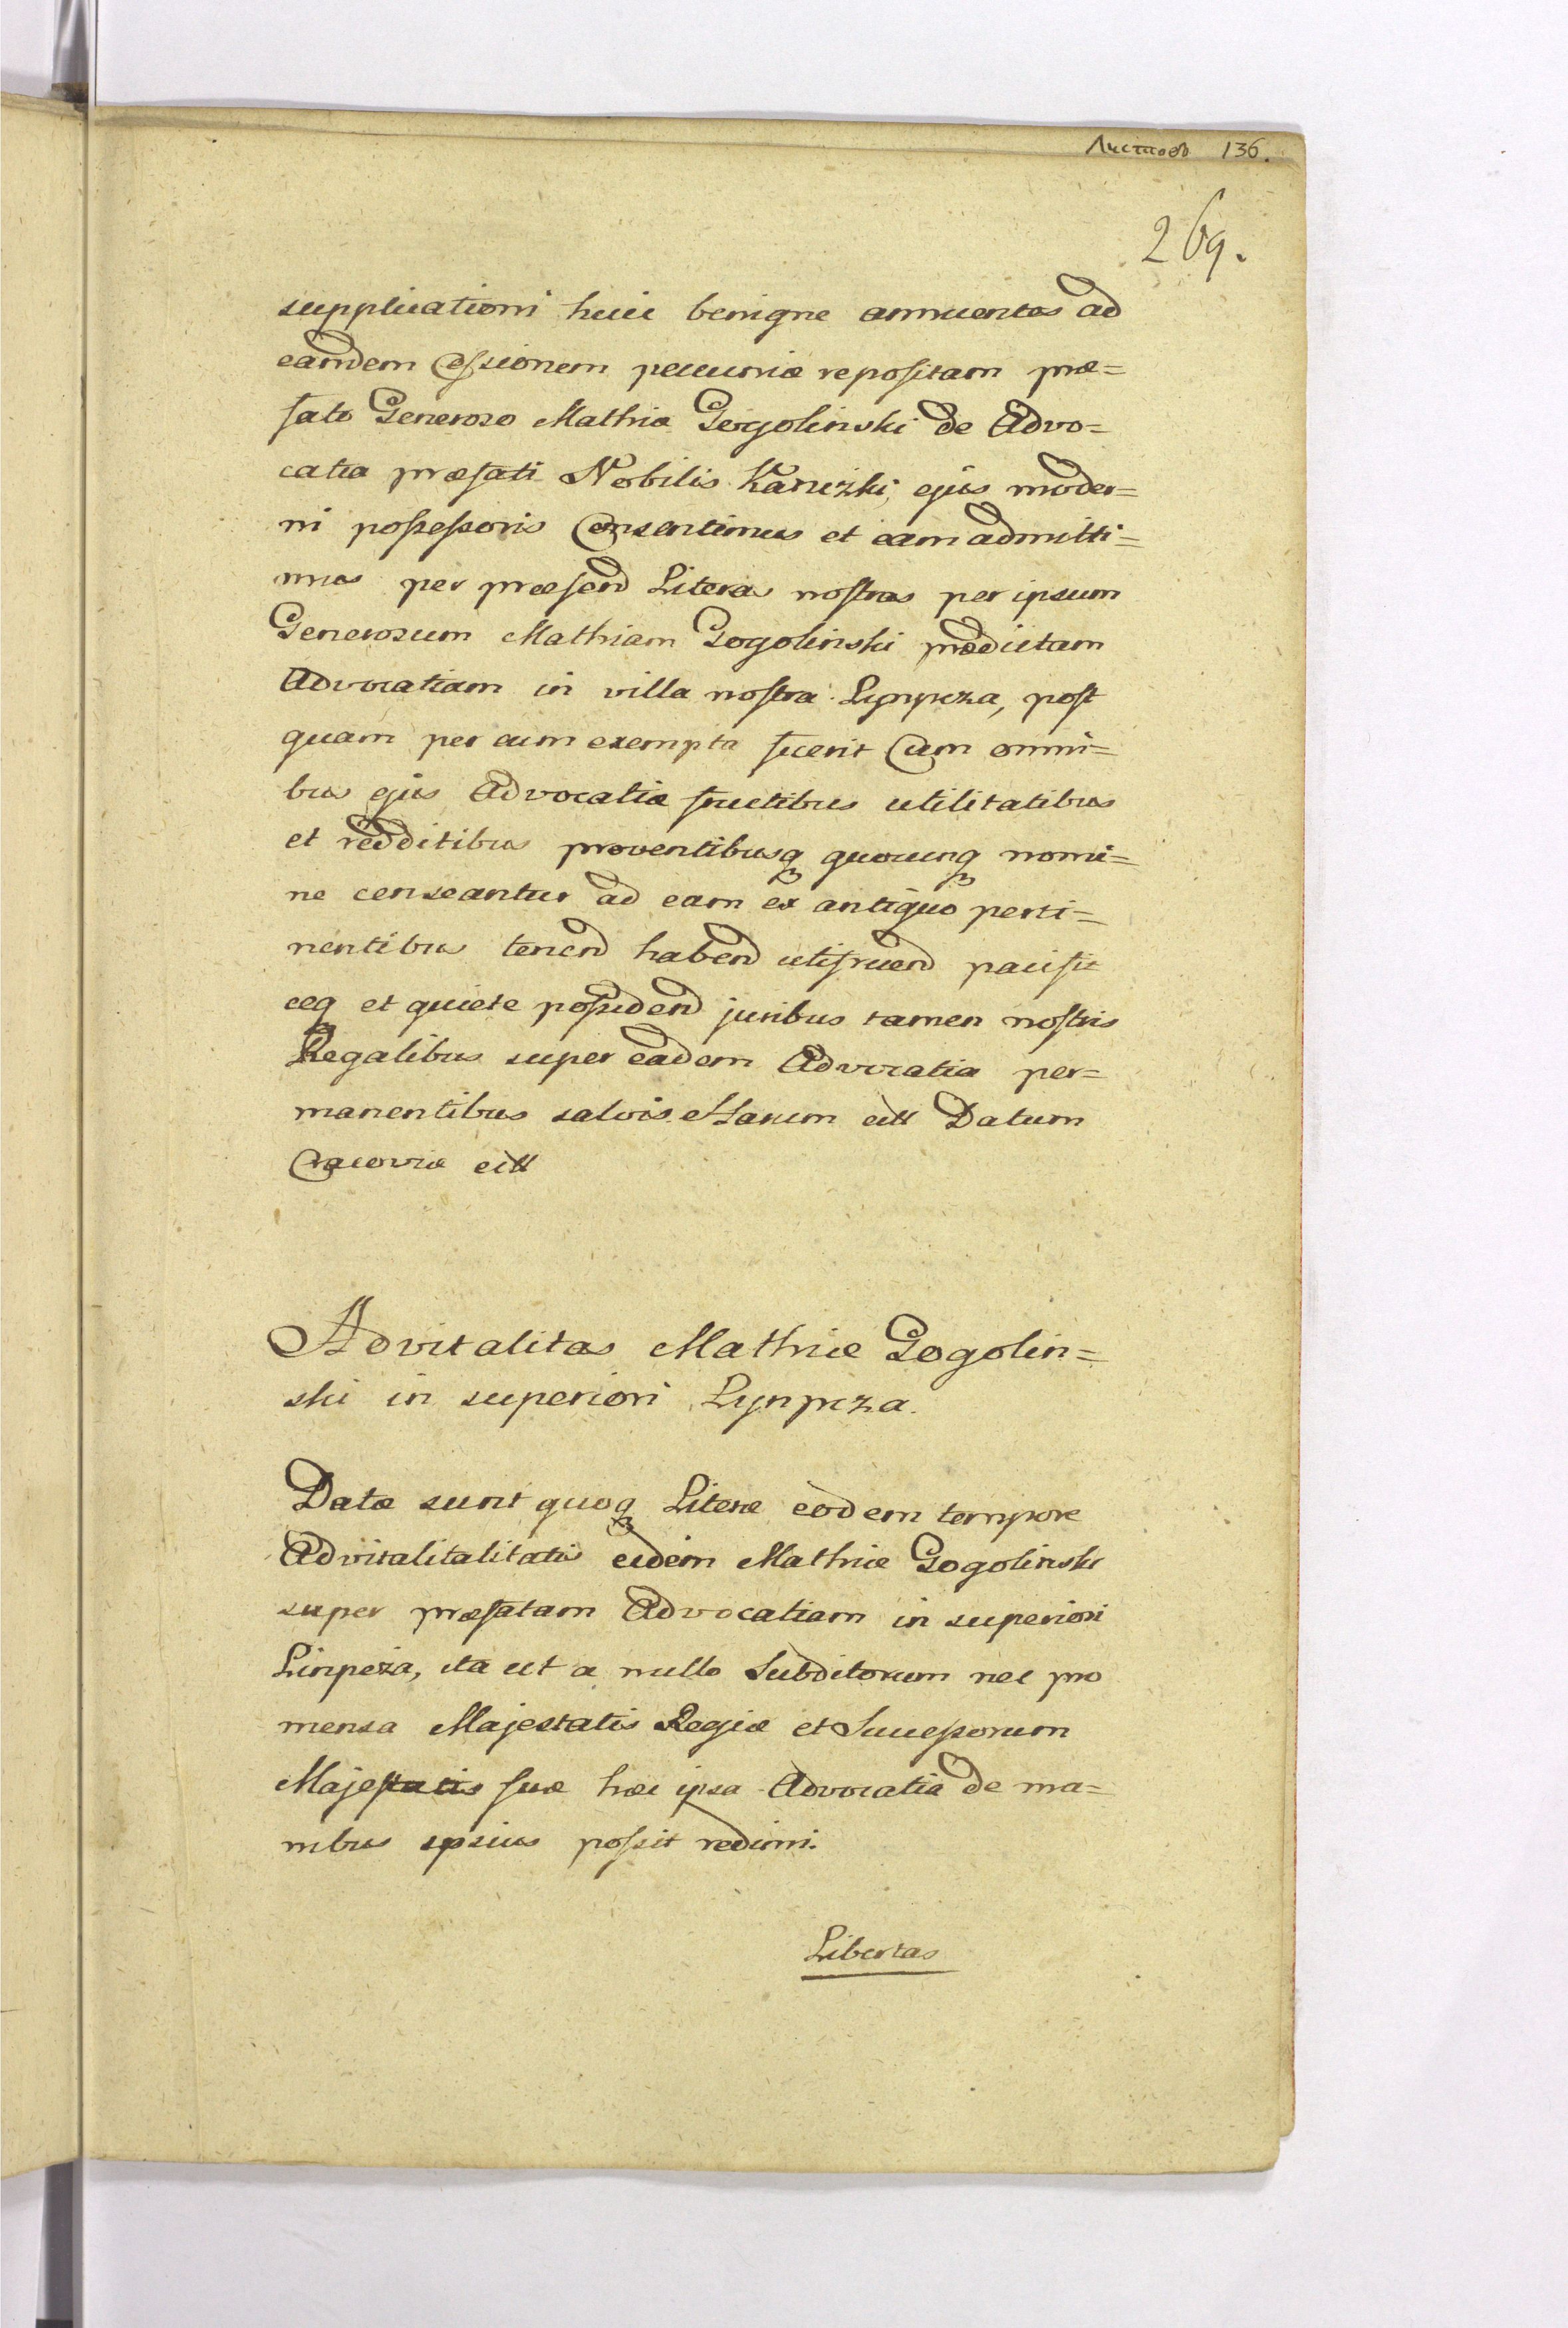 Листовъ 136.
269.
supplicationi huic benigne annuentes ad
eandem Cessionem pecuniæ repositam præ=
fato Generoso Mathiæ Gogolinski de Advo=
catia præfati Nobilis Kanizki, ejus moder=
ni possessoris Consentimus et eam admitti=
mus per præsend Literas nostras per ipsum
Generosum Mathiam Gogolinski prædictam
Advocatiam in villa nostra Lynpcza, post
quam per eum exempta fuerit Cum omni=
bus ejus Advocatiæ fructibus utilitatibus
et redditibus proventibusq quocunq nomi=
ne censeantur ad eam ex antiquo perti=
nentibus tenend habend utifruend pacifi
ceq et quiete possidend juribus tamen nostris
Regalibus super eadem Advocatia per=
manentibus salvis. Harum ett Datum
Cracoviæ ett
Advitalitas Mathiæ Gogolin=
ski in superiori Lynpcza.
Datæ sunt quoq Literæ eodem tempore
Advitalitalitatis eidem Mathiæ Gogolinski
super præfatam Advocatiam in superiori
Linpcza, ita ut a nullo Subditorum nec pro
mensa Majestatis Regiæ et Successorum
Majestatis suæ hæc ipsa Advocatia de ma=
nibus ipsius possit redimi.
Libertas